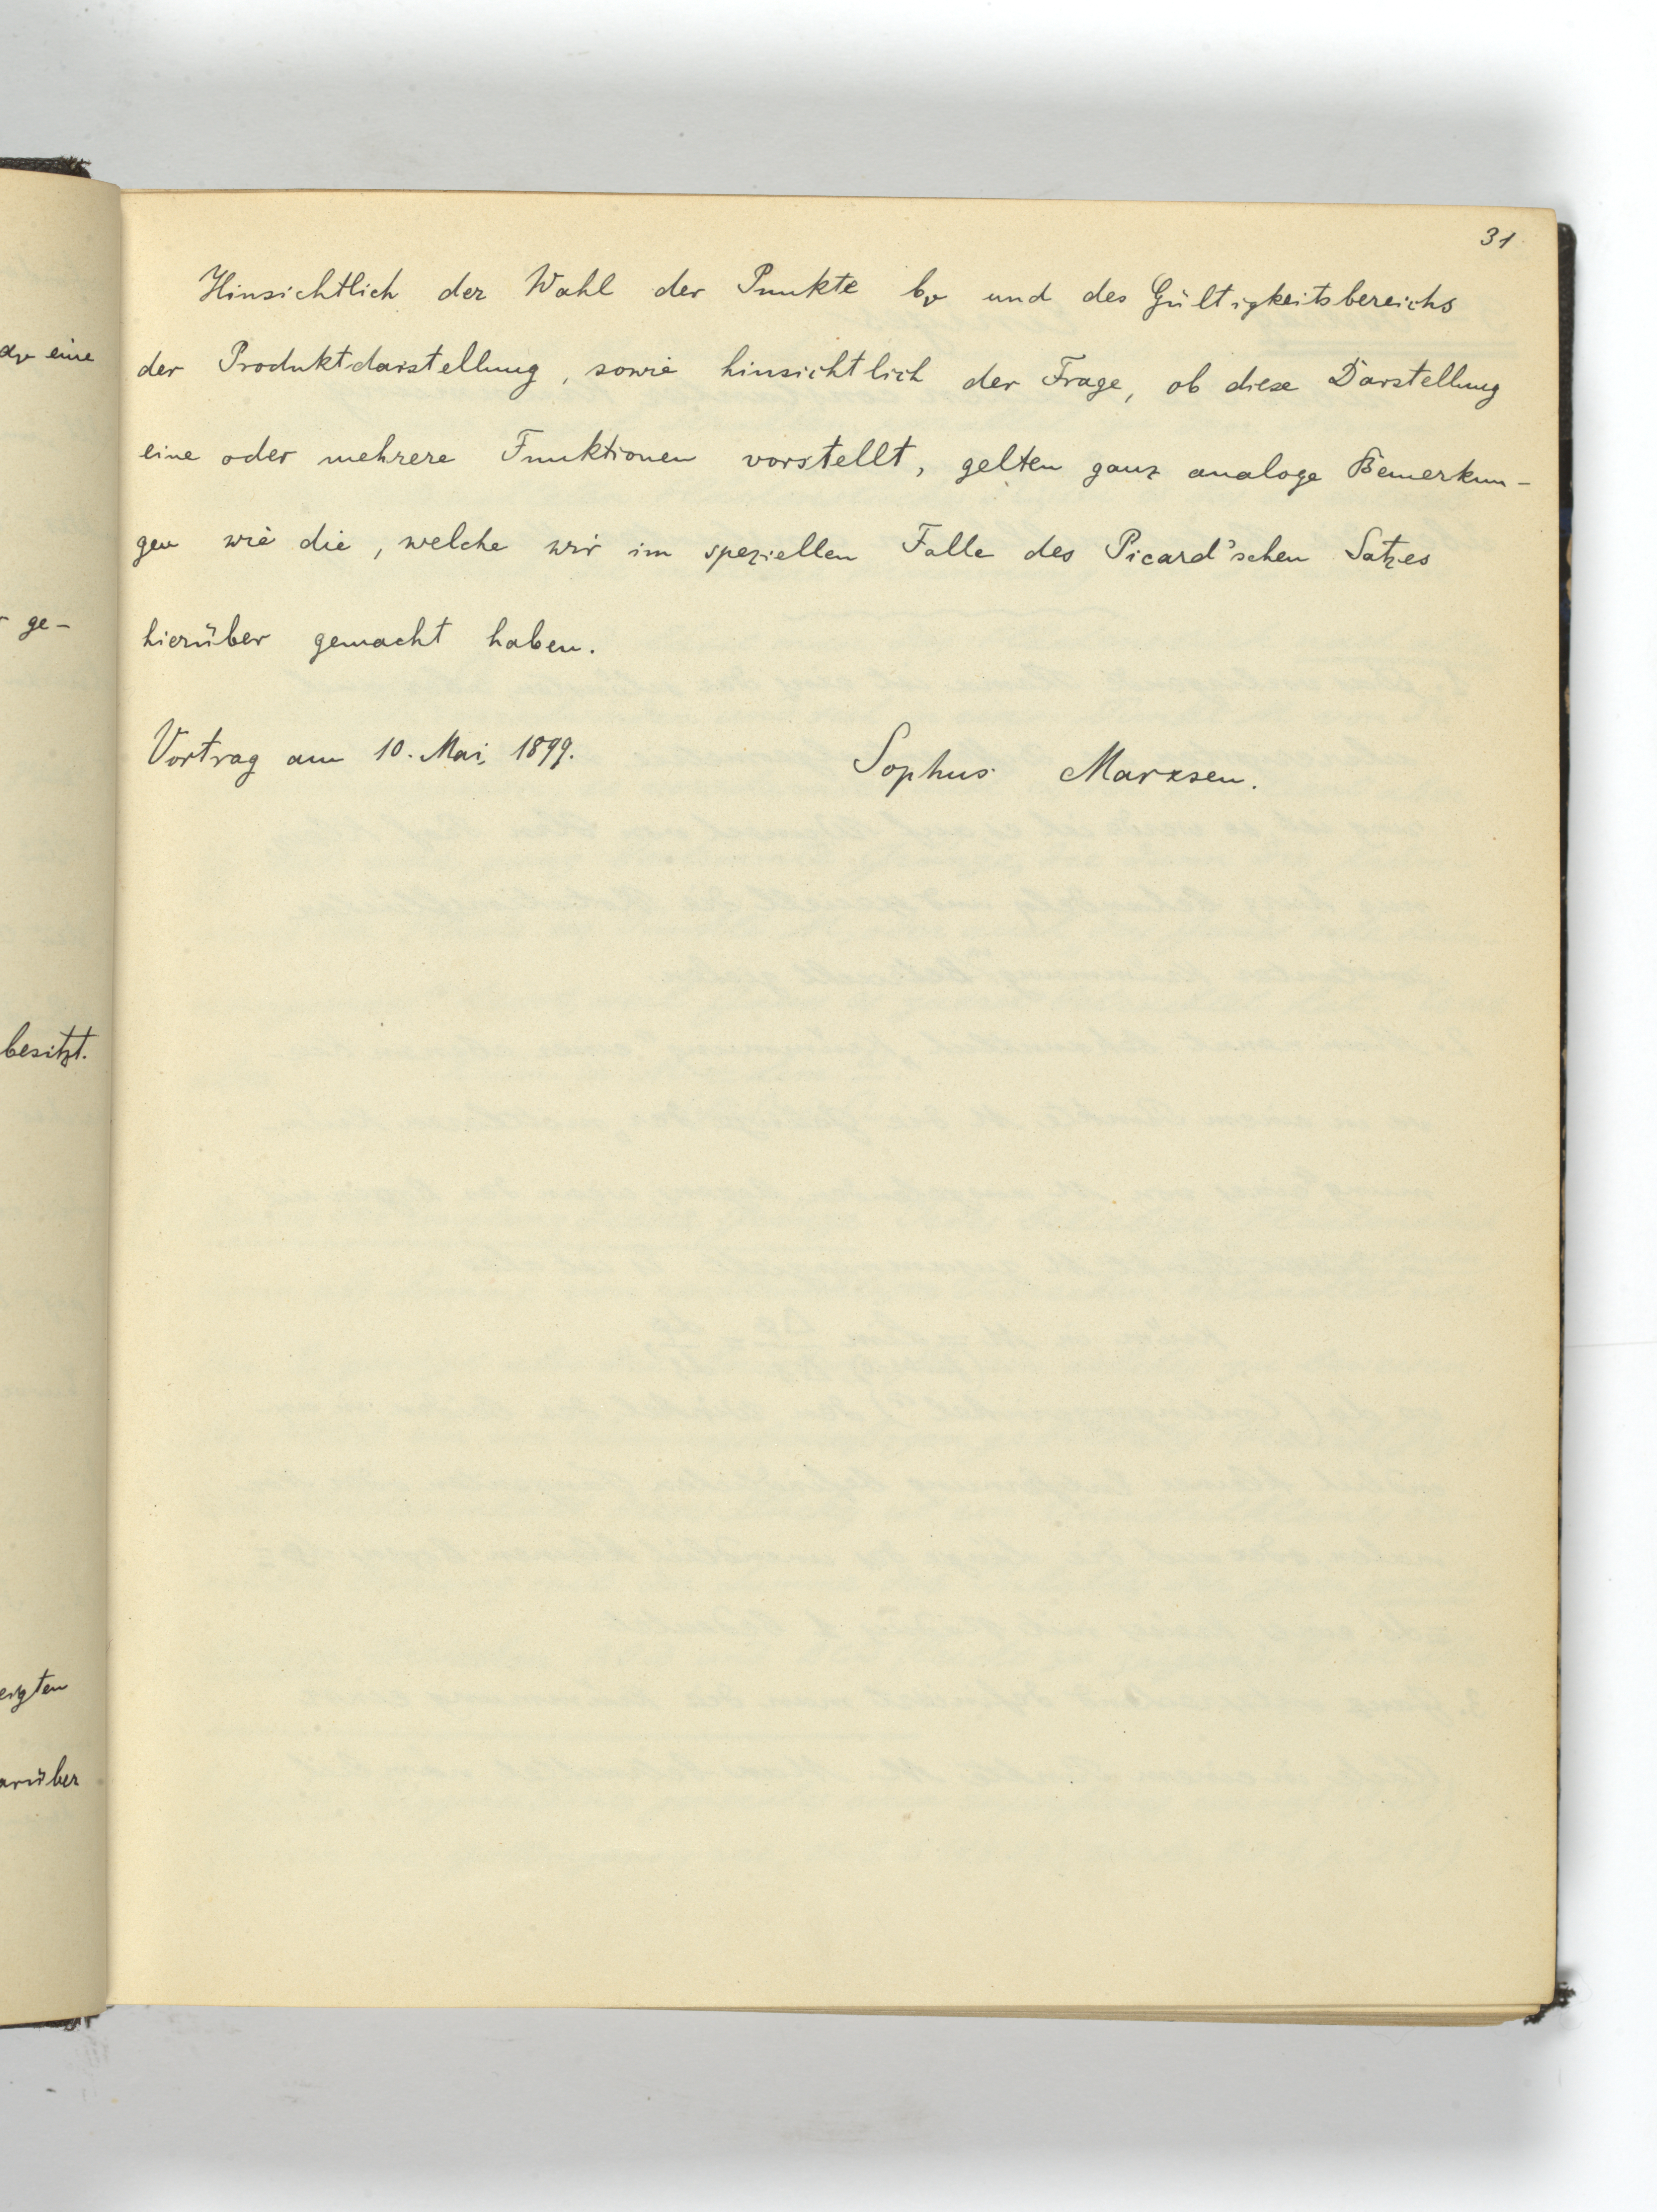 31
Hinsichtlich der Wahl der Punkte bᵥ und des Gültigkeitsbereichs
der Produktdarstellung, sowie hinsichtlich der Frage, ob diese Darstellung
eine oder mehrere Funktionen vorstellt, gelten ganz analoge Bemerkun-
gen wie die, welche wir im speziellen Falle des Picard'schen Satzes
hierüber gemacht haben.
Vortrag am 10. Mai, 1899.
Sophus Marxsen.
eine
ge-
besitzt.